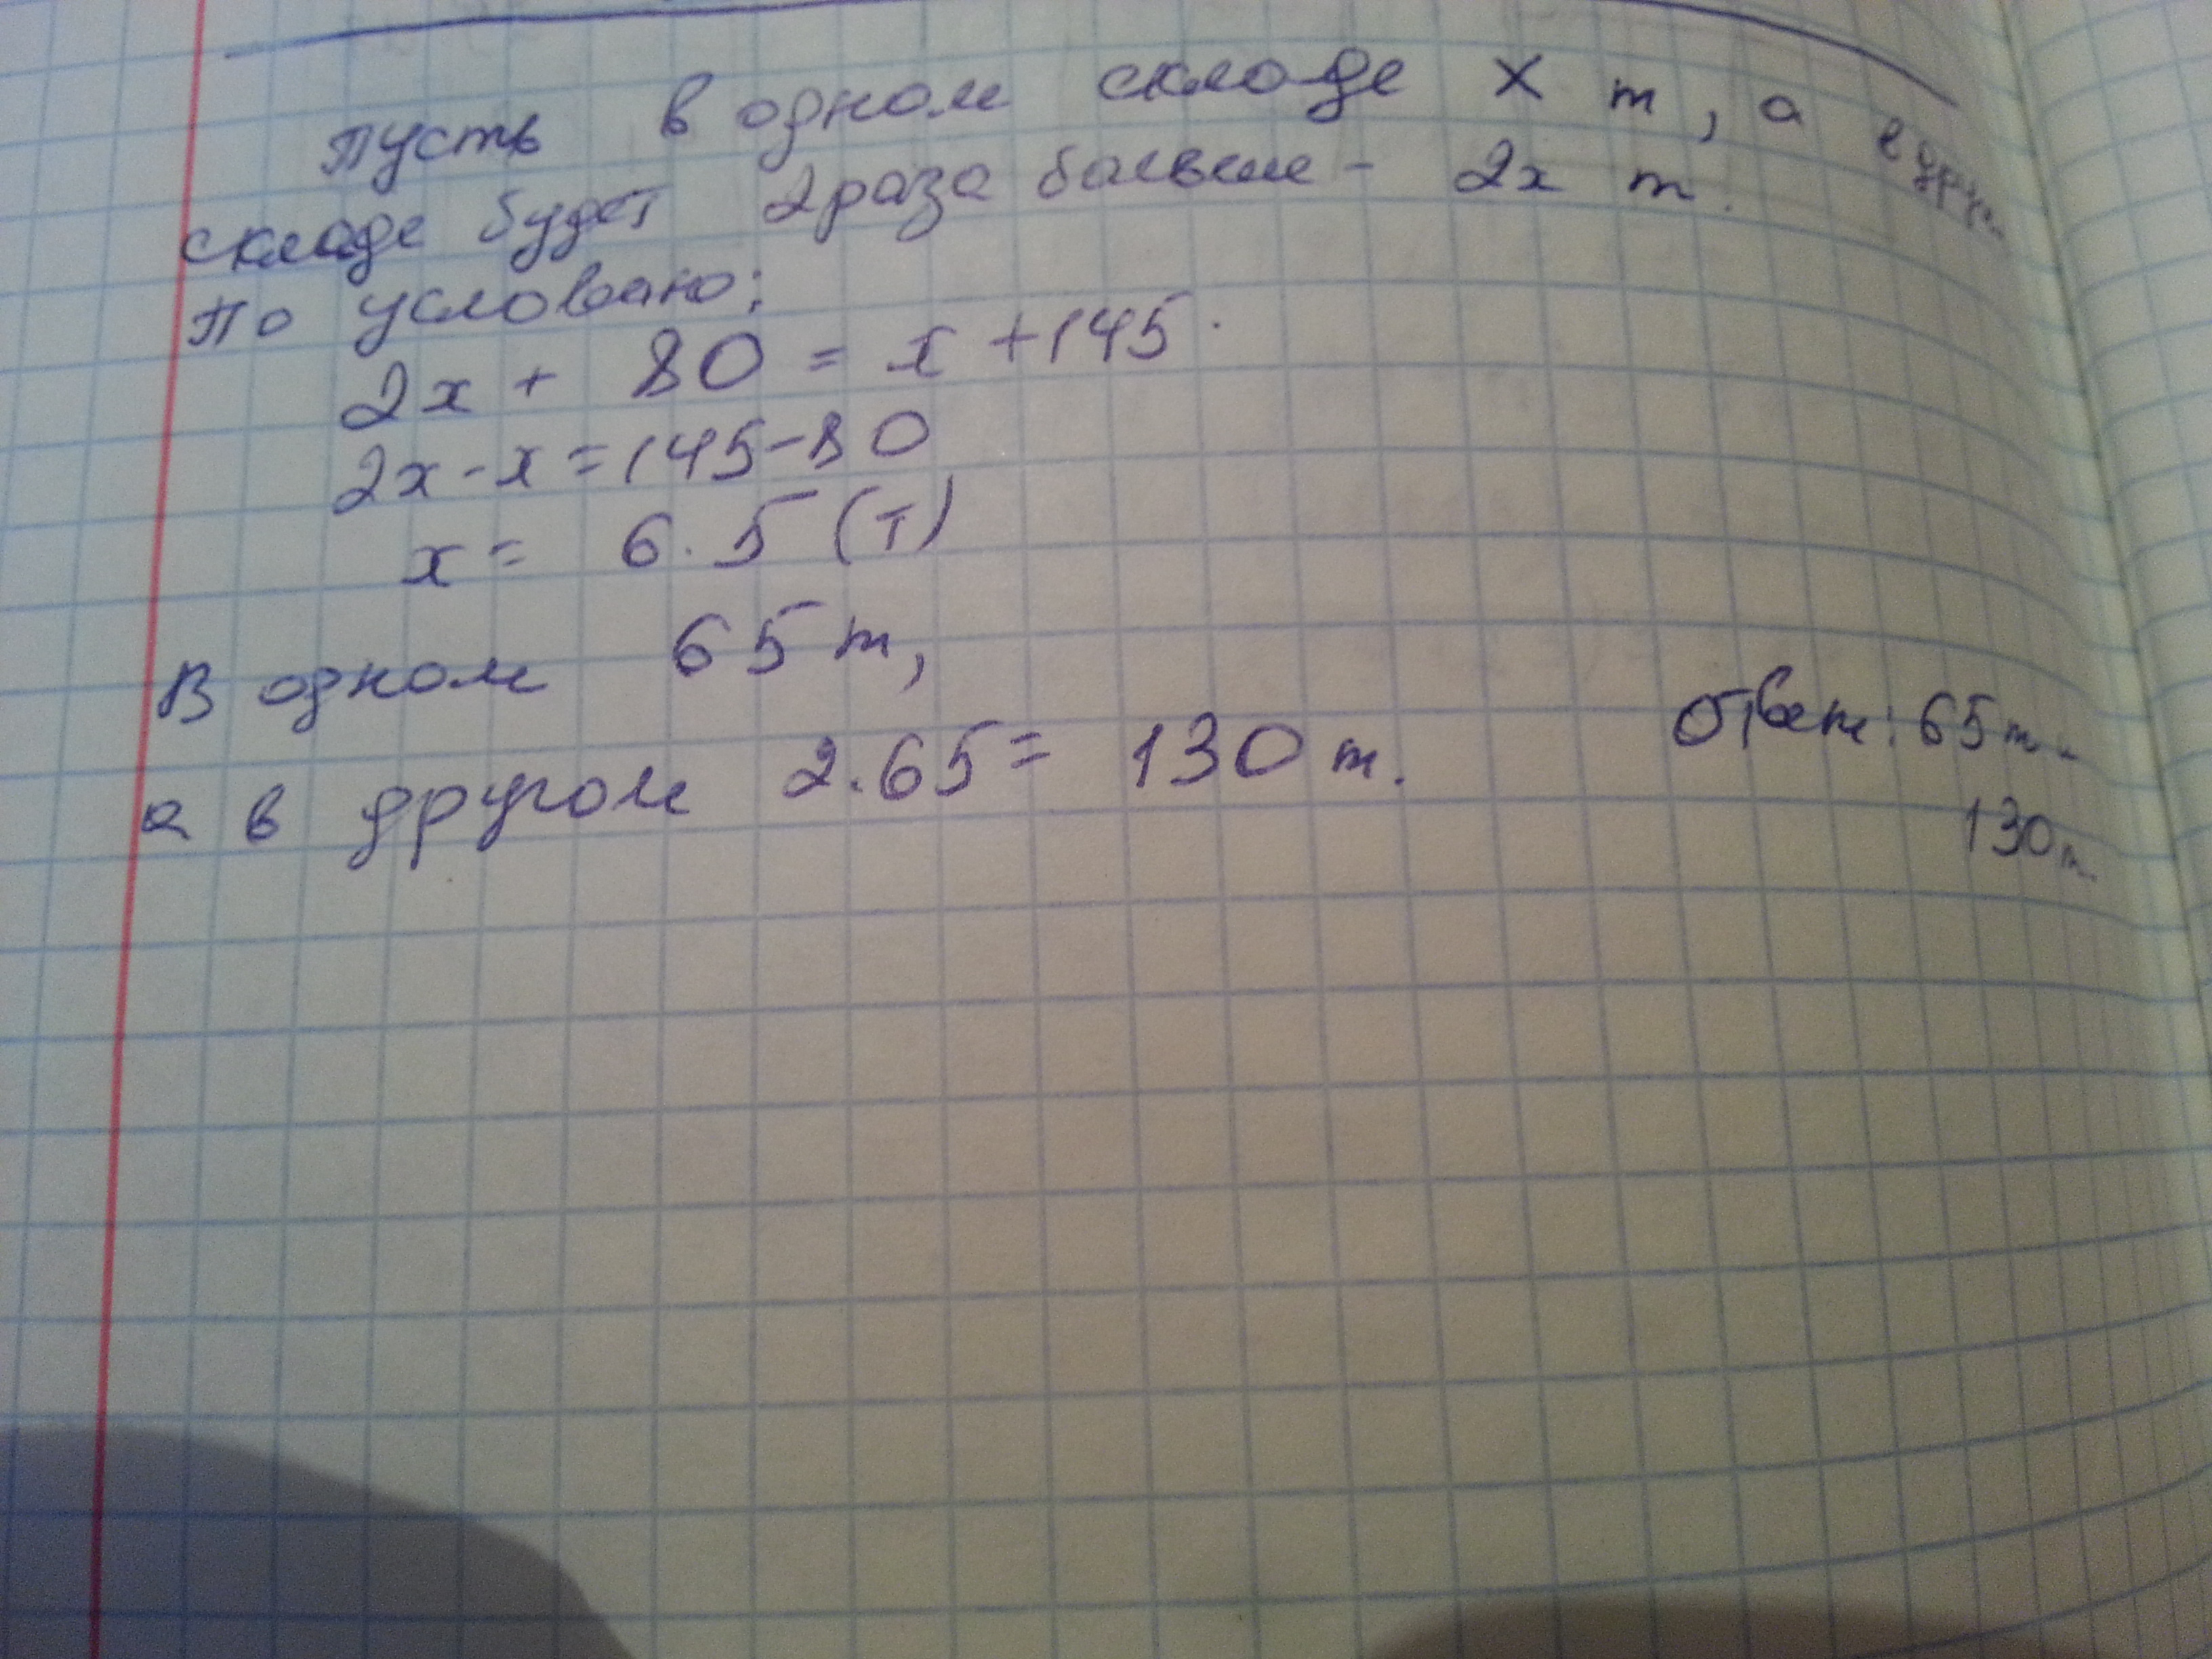 Пусть в одном складе х т, а в друг.
складе будет 2 раза больше - 2х т.
По условию:
2х + 80 = х + 145.
2х - х = 145 - 80
х = 6.5 (т)
В одном 65 т,
а в другом 2.65 = 130 т.
Ответ: 65 т.
130 т.